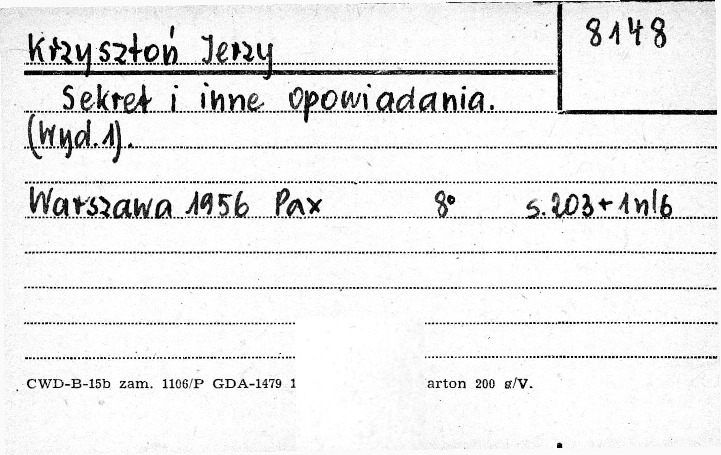 Krzysztoń Jerzy
8148
Sekret i inne opowiadania.
(Wyd. 1).
Warszawa 1956 Pax 8° s. 203 + 1 nlb
CWD-B-15b zam. 1106/P GDA-1479 1 arton 200 g/V.